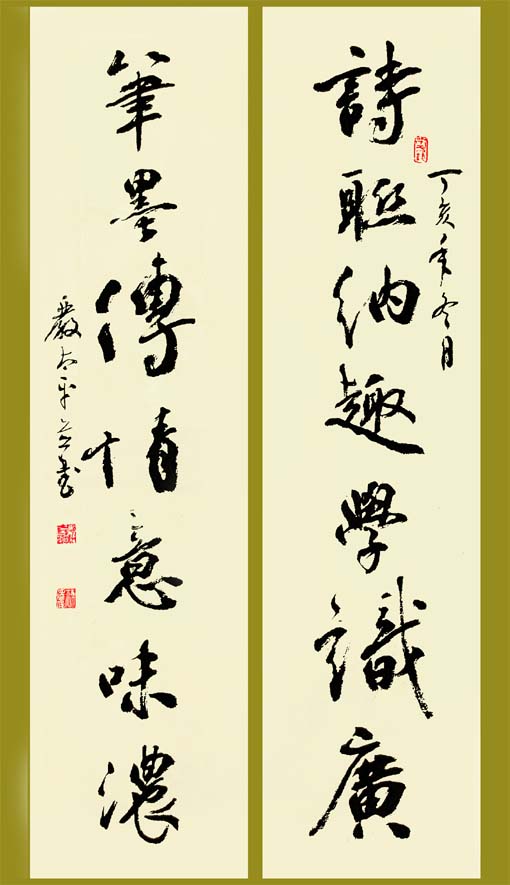 詩聯納趣學識廣
丁亥年冬月
筆墨傳情意味濃
嚴太平并書